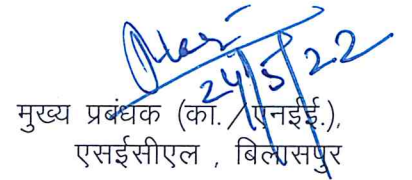 24/5/22
मुख्य प्रबंधक (का./एनईई.),
एसईसीएल , बिलासपुर